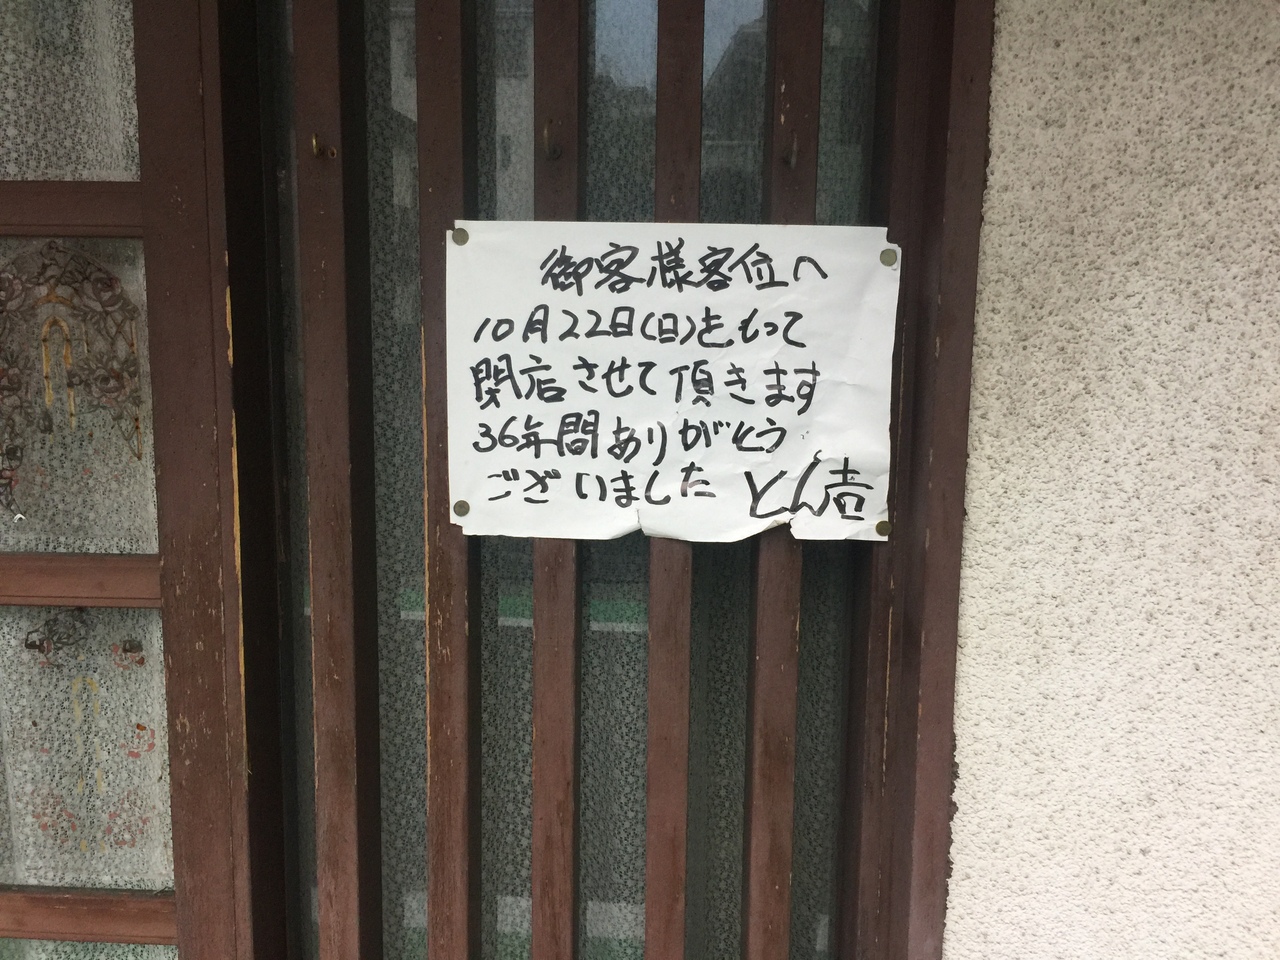 御客様客位へ
10月22日(日)をもって
閉店させて頂きます
36年間ありがとう
ございました とん吉